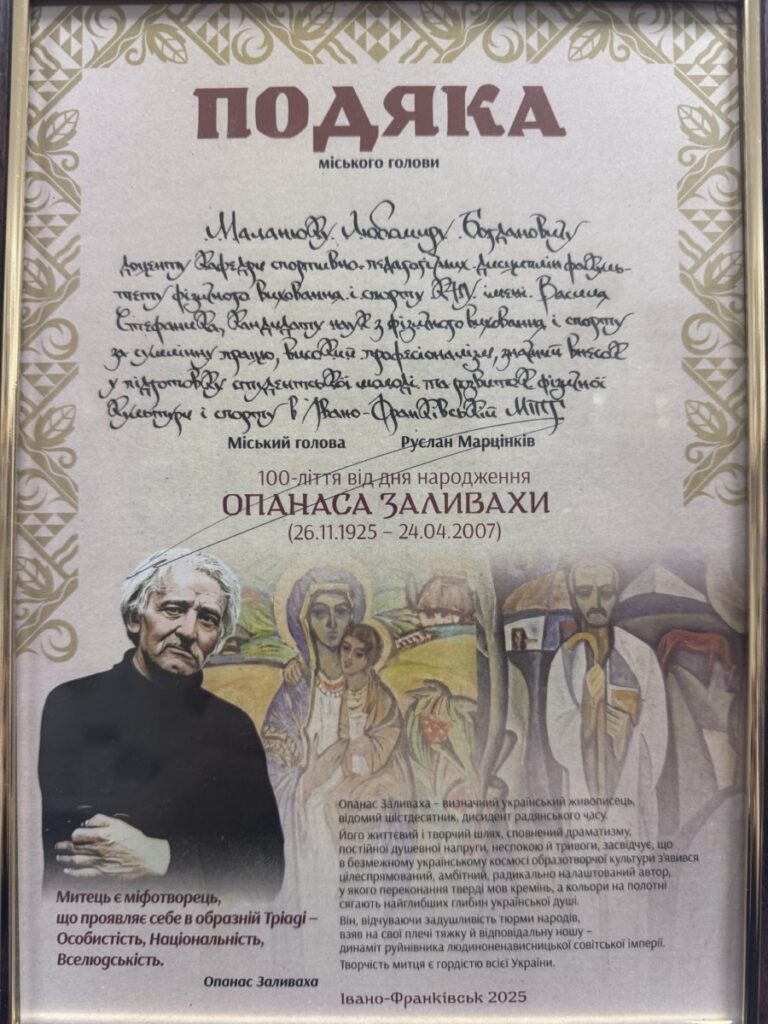 ПОДЯКА
міського голови
Маланюку Любомиру Богдановичу
доценту кафедри спортивно-педагогічних дисциплін факуль-
тету фізичного виховання і спорту КНУ імені Василя
Стефаника, кандидату наук з фізичного виховання і спорту
за сумлінну працю, високий професіоналізм, значний внесок
у підготовку студентської молоді та розвиток фізичної
культури і спорту в Івано-Франківській МТГ
Міський голова Руслан Марцінків
100-ліття від дня народження
ОПАНАСА ЗАЛИВАХИ
(26.11.1925 – 24.04.2007)
Опанас Заливаха – визначний український живописець,
відомий шістдесятник, дисидент радянського часу.
Його життєвий і творчий шлях, сповнений драматизму,
постійної душевної напруги, неспокою й тривоги, засвідчує, що
в безмежному українському космосі образотворчої культури з'явився
цілеспрямований, амбітний, радикально налаштований автор,
у якого переконання тверді мов кремінь, а кольори на полотні
сягають найглибших глибин української душі.
Він, відчуваючи задушливість тюрми народів,
взяв на свої плечі тяжку й відповідальну ношу –
динаміт руйнівника людиноненависницької совітської імперії.
Творчість митця є гордістю всієї України.
Митець є міфотворець,
що проявляє себе в образній Тріаді –
Особистість, Національність,
Вселюдськість.
Опанас Заливаха
Івано-Франківськ 2025